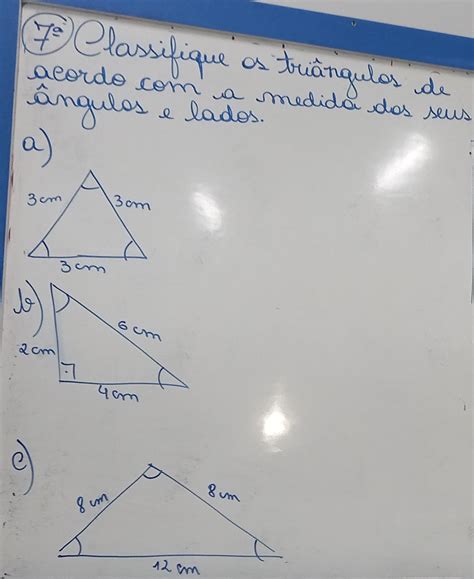 7ª Classifique os triângulos de
acordo com a medida dos seus
ângulos e lados.
a)
3cm 3cm
3cm
b)
6cm
2cm
4cm
c)
8cm 8cm
12cm